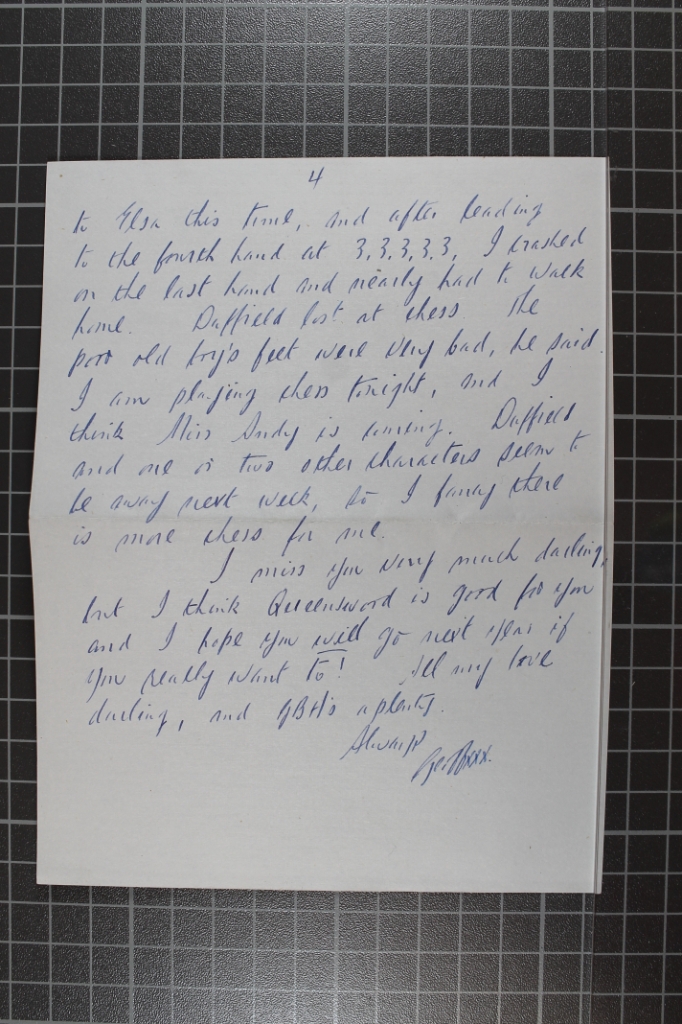 4
to Elsa this time, and after leading
to the fourth hand at 3,3,3,3,3, I crashed
on the last hand and nearly had to walk
home. Daffield lost at chess. The
poor old boy's feet were very bad, he said.
I am playing chess tonight, and I
think Miss Andy is coming. Daffield
and one or two other characters seem to
be away next week, so I fancy there
is more chess for me.
I miss you very much darling,
but I think Queenswood is good for you
and I hope you will go next year if
you really want to! All my love
darling, and GBH's aplenty.
Always
Geoffxxx.